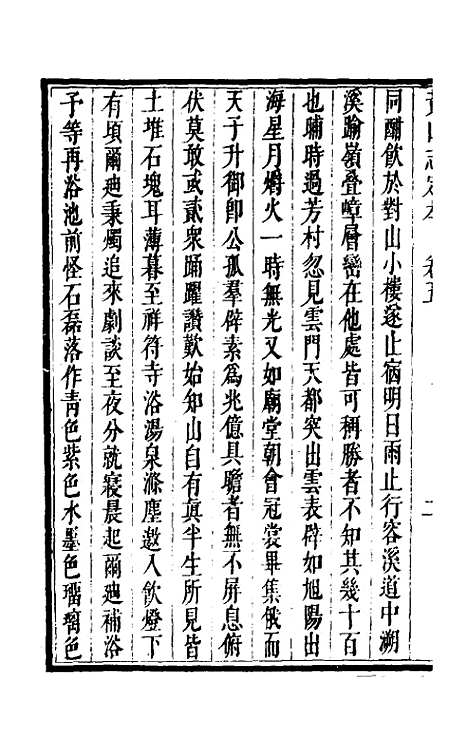 黃山志定本 卷五 二
同酣飲於對山小樓遂止宿明日雨止行容溪道中溯
溪踰嶺叠嶂層巒在他處皆可稱勝者不知其幾十百
也晡時過芳村忽見雲門天都突出雲表辟如旭陽出
海星月爝火一時無光又如廟堂朝會冠裳畢集俄而
天子升御卽公孤羣辟素為兆億具瞻者無不屏息俯
伏莫敢或貳衆踊躍讚歎始知山自有眞半生所見皆
土堆石塊耳薄暮至祥符寺浴湯泉滌塵邀入飲燈下
有頃爾廸秉燭追來劇談至夜分就寢晨起爾廸補浴
予等再浴池前怪石磊落作靑色紫色水墨色瑠璃色